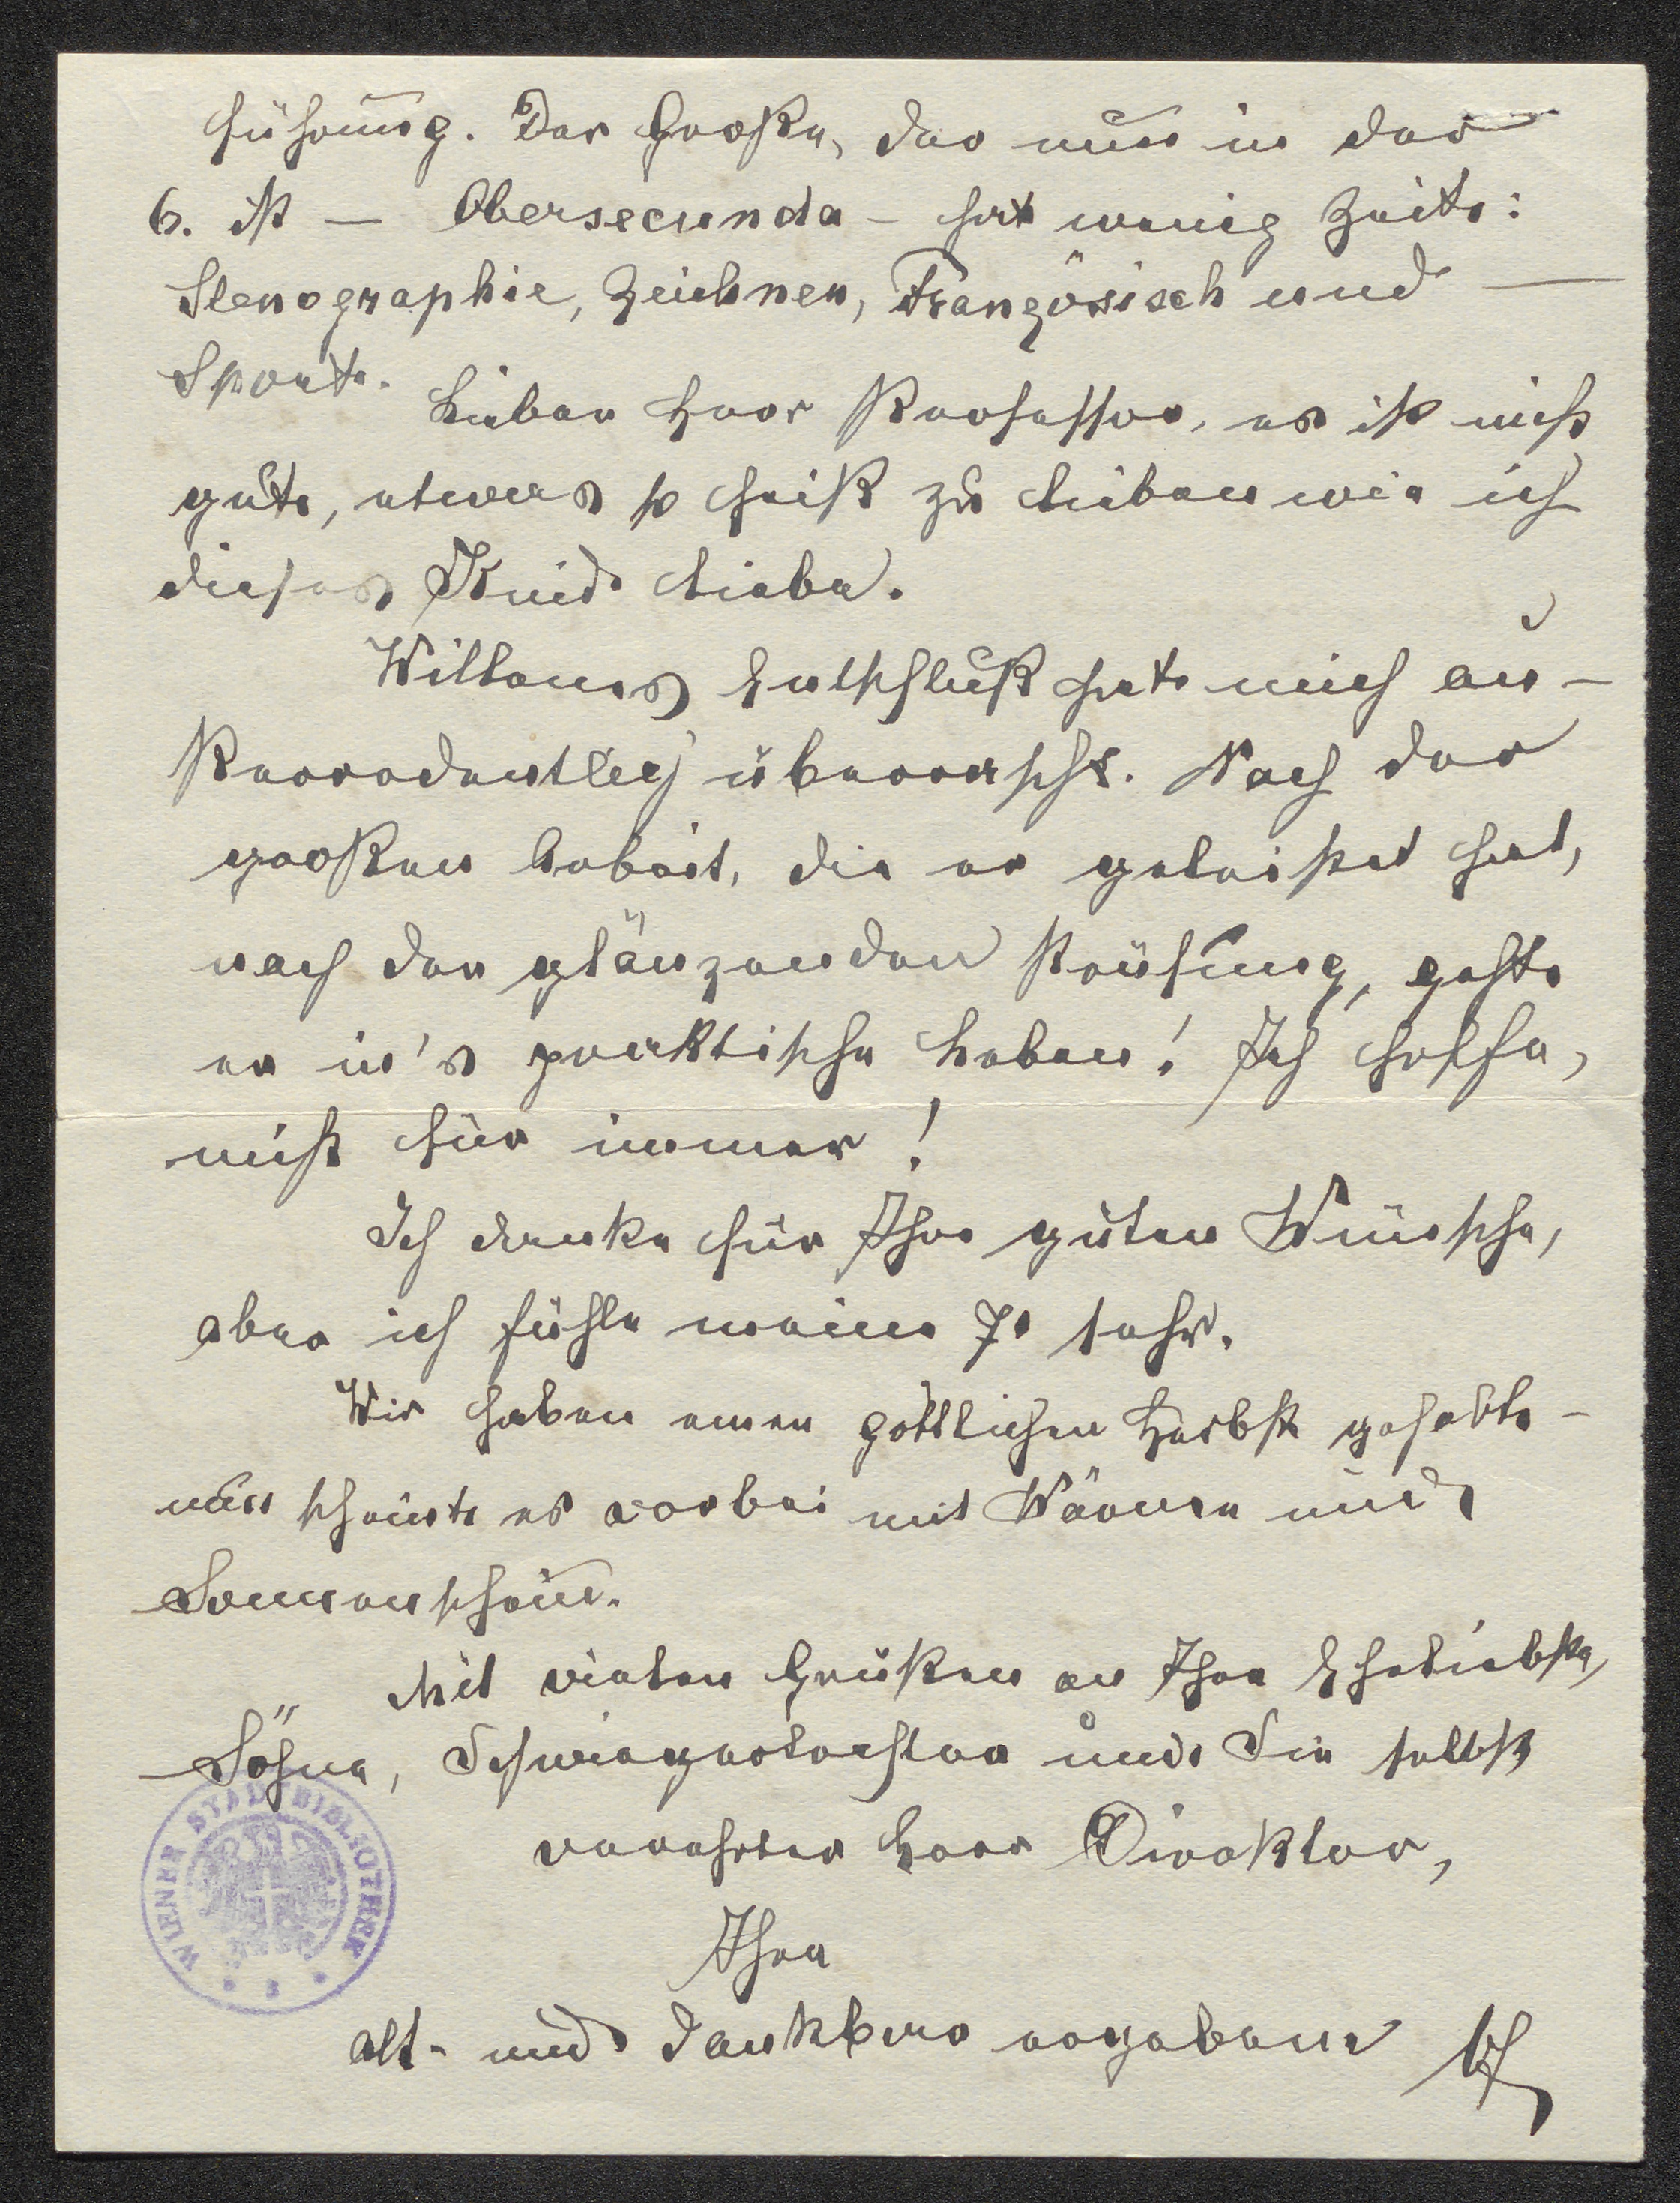 führung. Der Große, der nun in der
6. ist — Obersecunda – hat wenig Zeit:
Stenographie, Zeichnen, Französisch und —
Sport.
Lieber Herr Professor, es ist nicht
gut, etwas so heiß zu lieben wie ich
dieses Kind liebe.
Willems Entschluß hat mich au-
ßerordentlich überrascht. Nach der
großen Arbeit, die er geleistet hat,
nach der glänzenden Prüfung, geht
er in's praktische Leben! Ich hoffe,
nicht für immer!
Ich danke für Ihre guten Wünsche,
aber ich fühle meine 70 Jahr.
Wir haben einen göttlichen Herbst gehabt –
nun scheint es vorbei mit Wärme und
Sonnenschein.
Mit vielen Grüßen an Ihre Eheliebste,
Söhne, Schwiegertochter und Sie selbst
verehrter Herr Direktor,
Ihre
alt- und dankbar ergebene
WIENER STADTBIBLIOTHEK